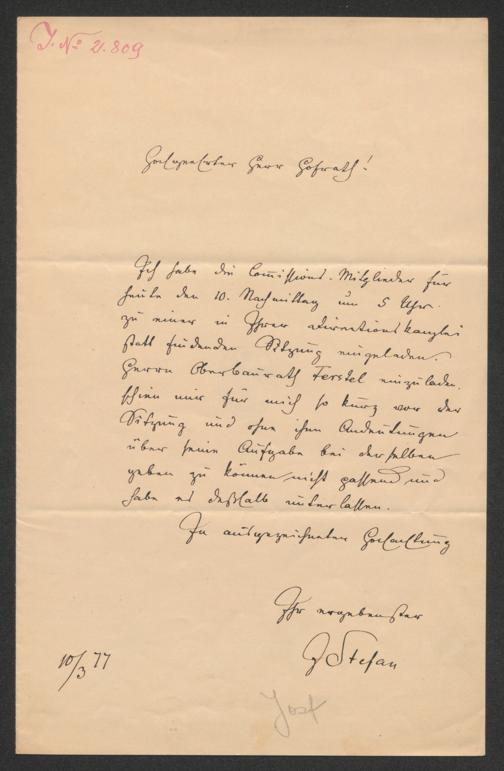 J. No 21.809
Hochgeehrter Herr Hofrath!
Ich habe die Com̅issions-Mitglieder für
heute den 10. Nachmittag um 5 Uhr
zu einer in Ihrer Directionskanzlei
statt findenden Sitzung eingeladen.
Herrn Oberbaurath Ferstel einzuladen,
schien mir für mich so kurz vor der
Sitzung und ohne ihm Andeutungen
über seine Aufgabe bei derselben
geben zu können nicht passend und
habe es deßhalb unterlassen.
In ausgezeichneter Hochachtung
Ihr ergebenster
J Stefan
10/3 77
Josef